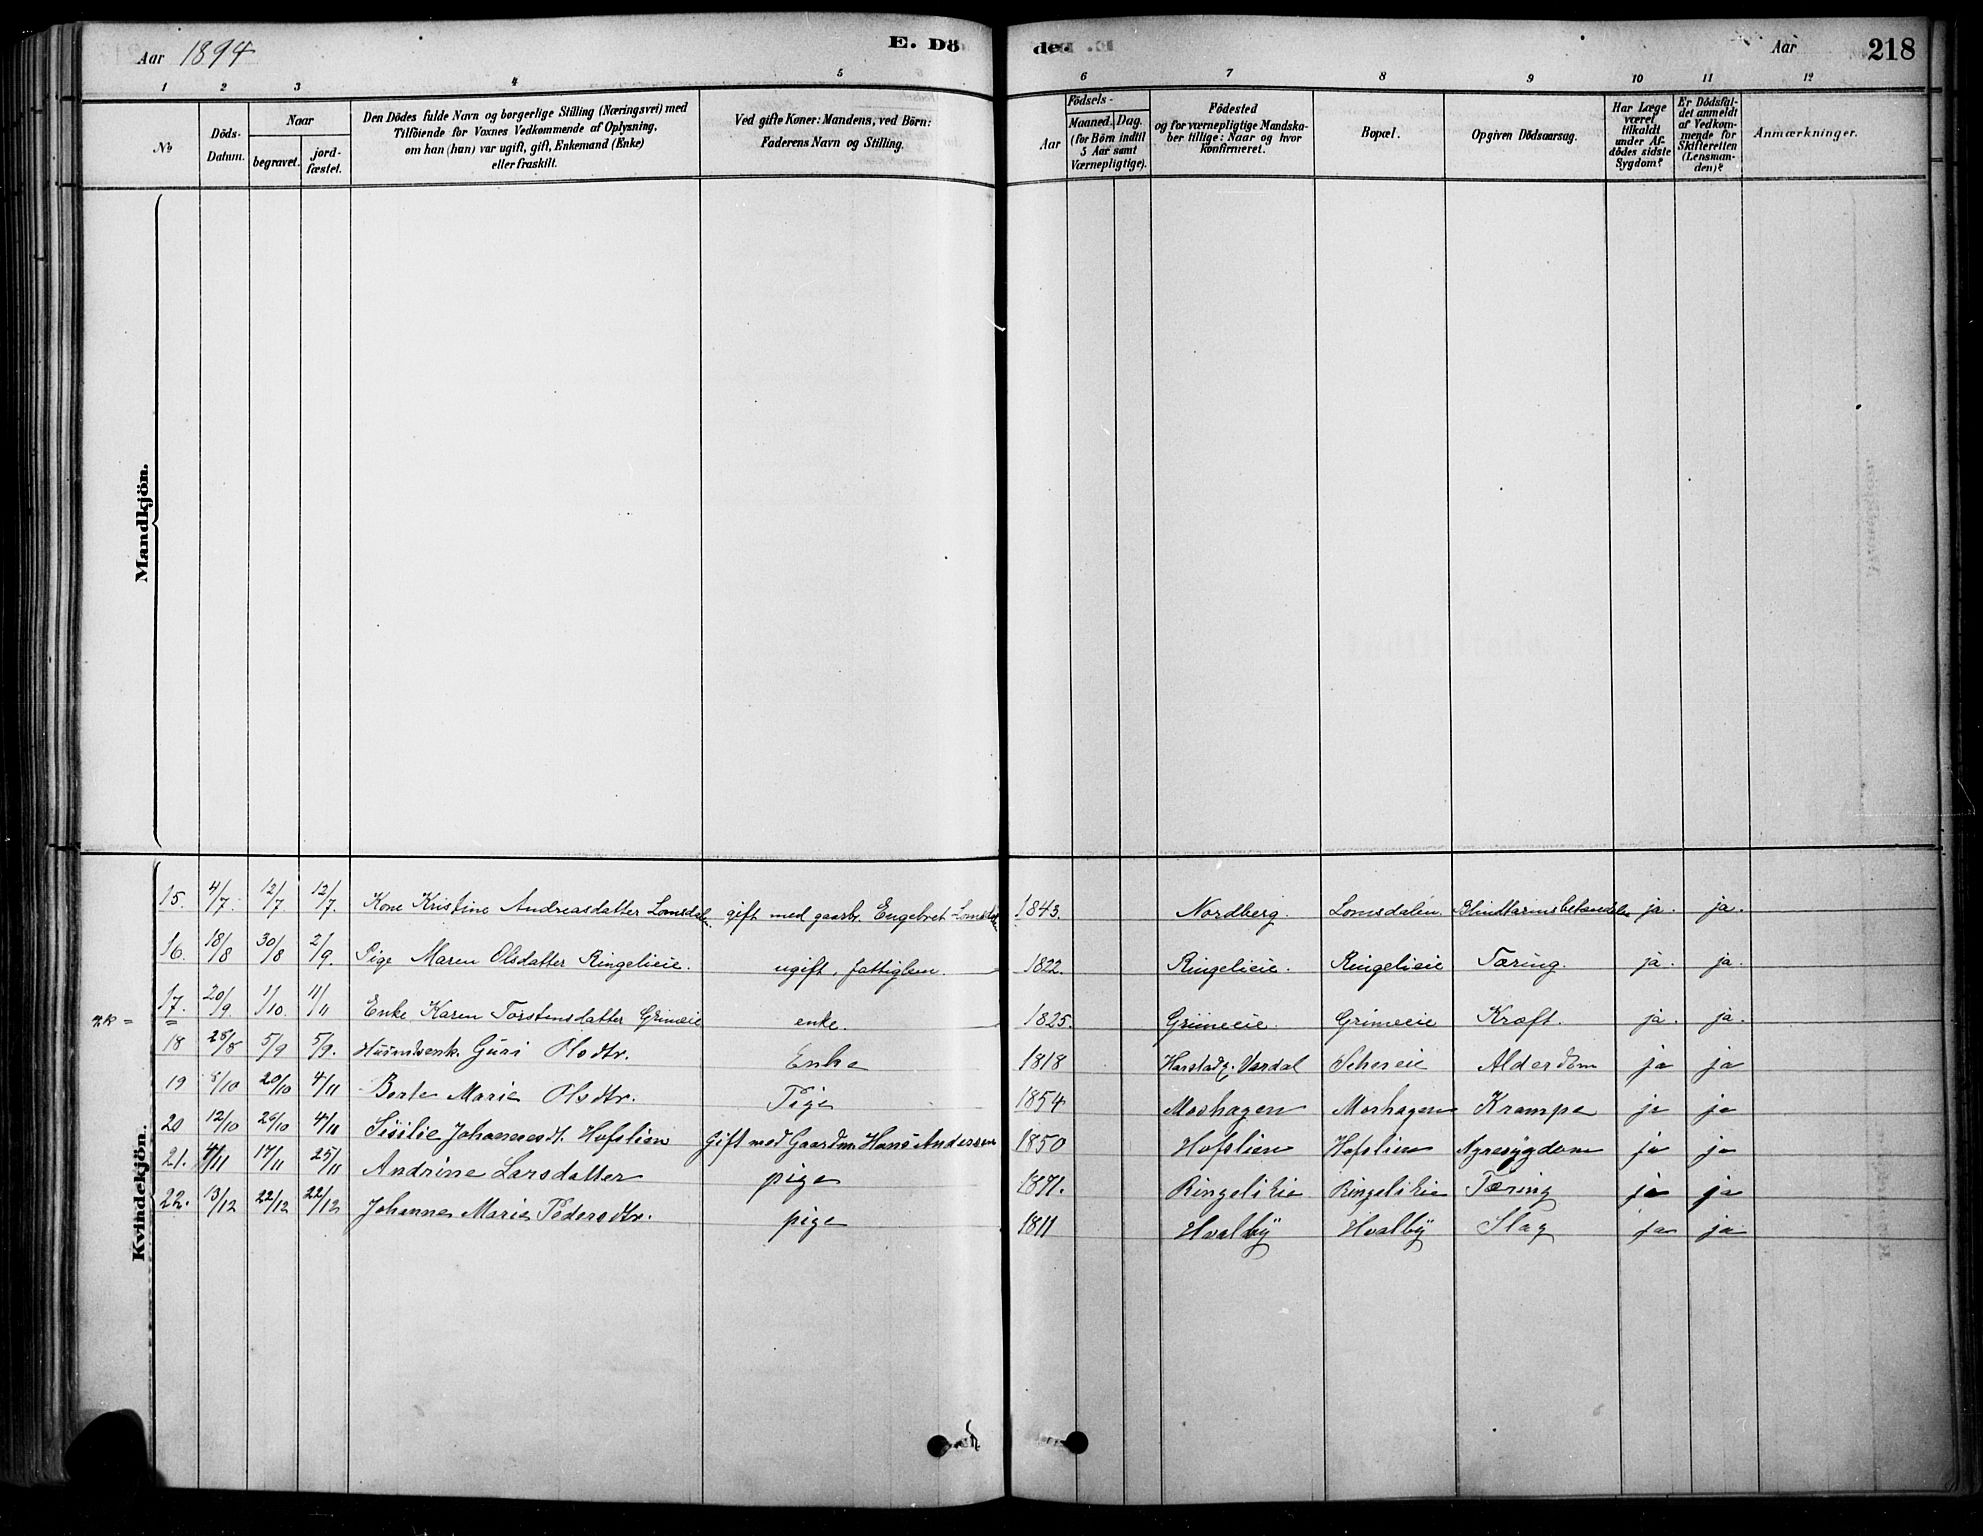 Aar 1894
E. Dö
den
Aar
218
1 2 3 4 5 6 7 8 9 10 11 12
No
Döds-Datum.
Naar
begravet.
jord-fæstet.
Den Dödes fulde Navn og borgerlige Stilling (Næringsvei) med
Tilföiende for Voxnes Vedkommende af Oplysning,
om han (hun) var ugift, gift, Enkemand (Enke)
eller fraskilt.
Ved gifte Koner: Mandens, ved Börn:
Faderens Navn og Stilling.
Aar
Födsels-
Maaned. Dag.
(for Börn indtil
5 Aar samt
Værnepligtige).
Födested
og for værnepligtige Mandska-
ber tillige: Naar og hvor
konfirmeret.
Bopæl.
Opgiven Dödsaarsag.
Har Læge
været
tilkaldt
under Af-
dödes sidste
Sygdom?
Er Dödsfal-
det anmeldt
af Vedkom-
mende for
Skifteretten
(Lensman-
den)?
Anmærkninger.
Mandkjön.
Kvindekjön.
15. 4/7. 12/7. 12/7. Kone Kristine Andreasdatter Lomsdalen. gift med gaarbr. Engebret 1843. Nordberg. Lomsdalen. Blindtarmsbetændelse ja. ja.
16. 18/8 30/8 2/9. Pige Maren Olsdatter Ringelieie. ugift, fattiglem 1822. Ringelieie. Ringelieie Tæring. ja. ja.
17. 20/9. 1/10. 4/11 Enke Karen Torstensdatter Grimeeie enke. 1825. Grimeeie. Grimeeie Kræft. ja. ja.
18 28/8 5/9 5/9. Husmdsenk. Guri Olsdtr. Enke 1818 Vardal Alderdom ja ja
19 8/10 20/10 4/11 Berte Marie Olsdtr. Pige 1854 Moshagen Moshagen Krampe ja ja
20 12/10 26/10 4/11 Sisilie Johannesdt. Hofslien Gift med Gaardm. Hans Andersen 1850 Hofslien Hofslien Nyresygdom ja ja
21. 4/11 17/11 25/11 Andrine Larsdatter pige 1871. Ringelieie Ringelieie Tæring ja ja
22. 13/12 22/12 22/12 Johanne Marie Pedersdtr. pige 1811 Hvalby Hvalby Slag ja ja